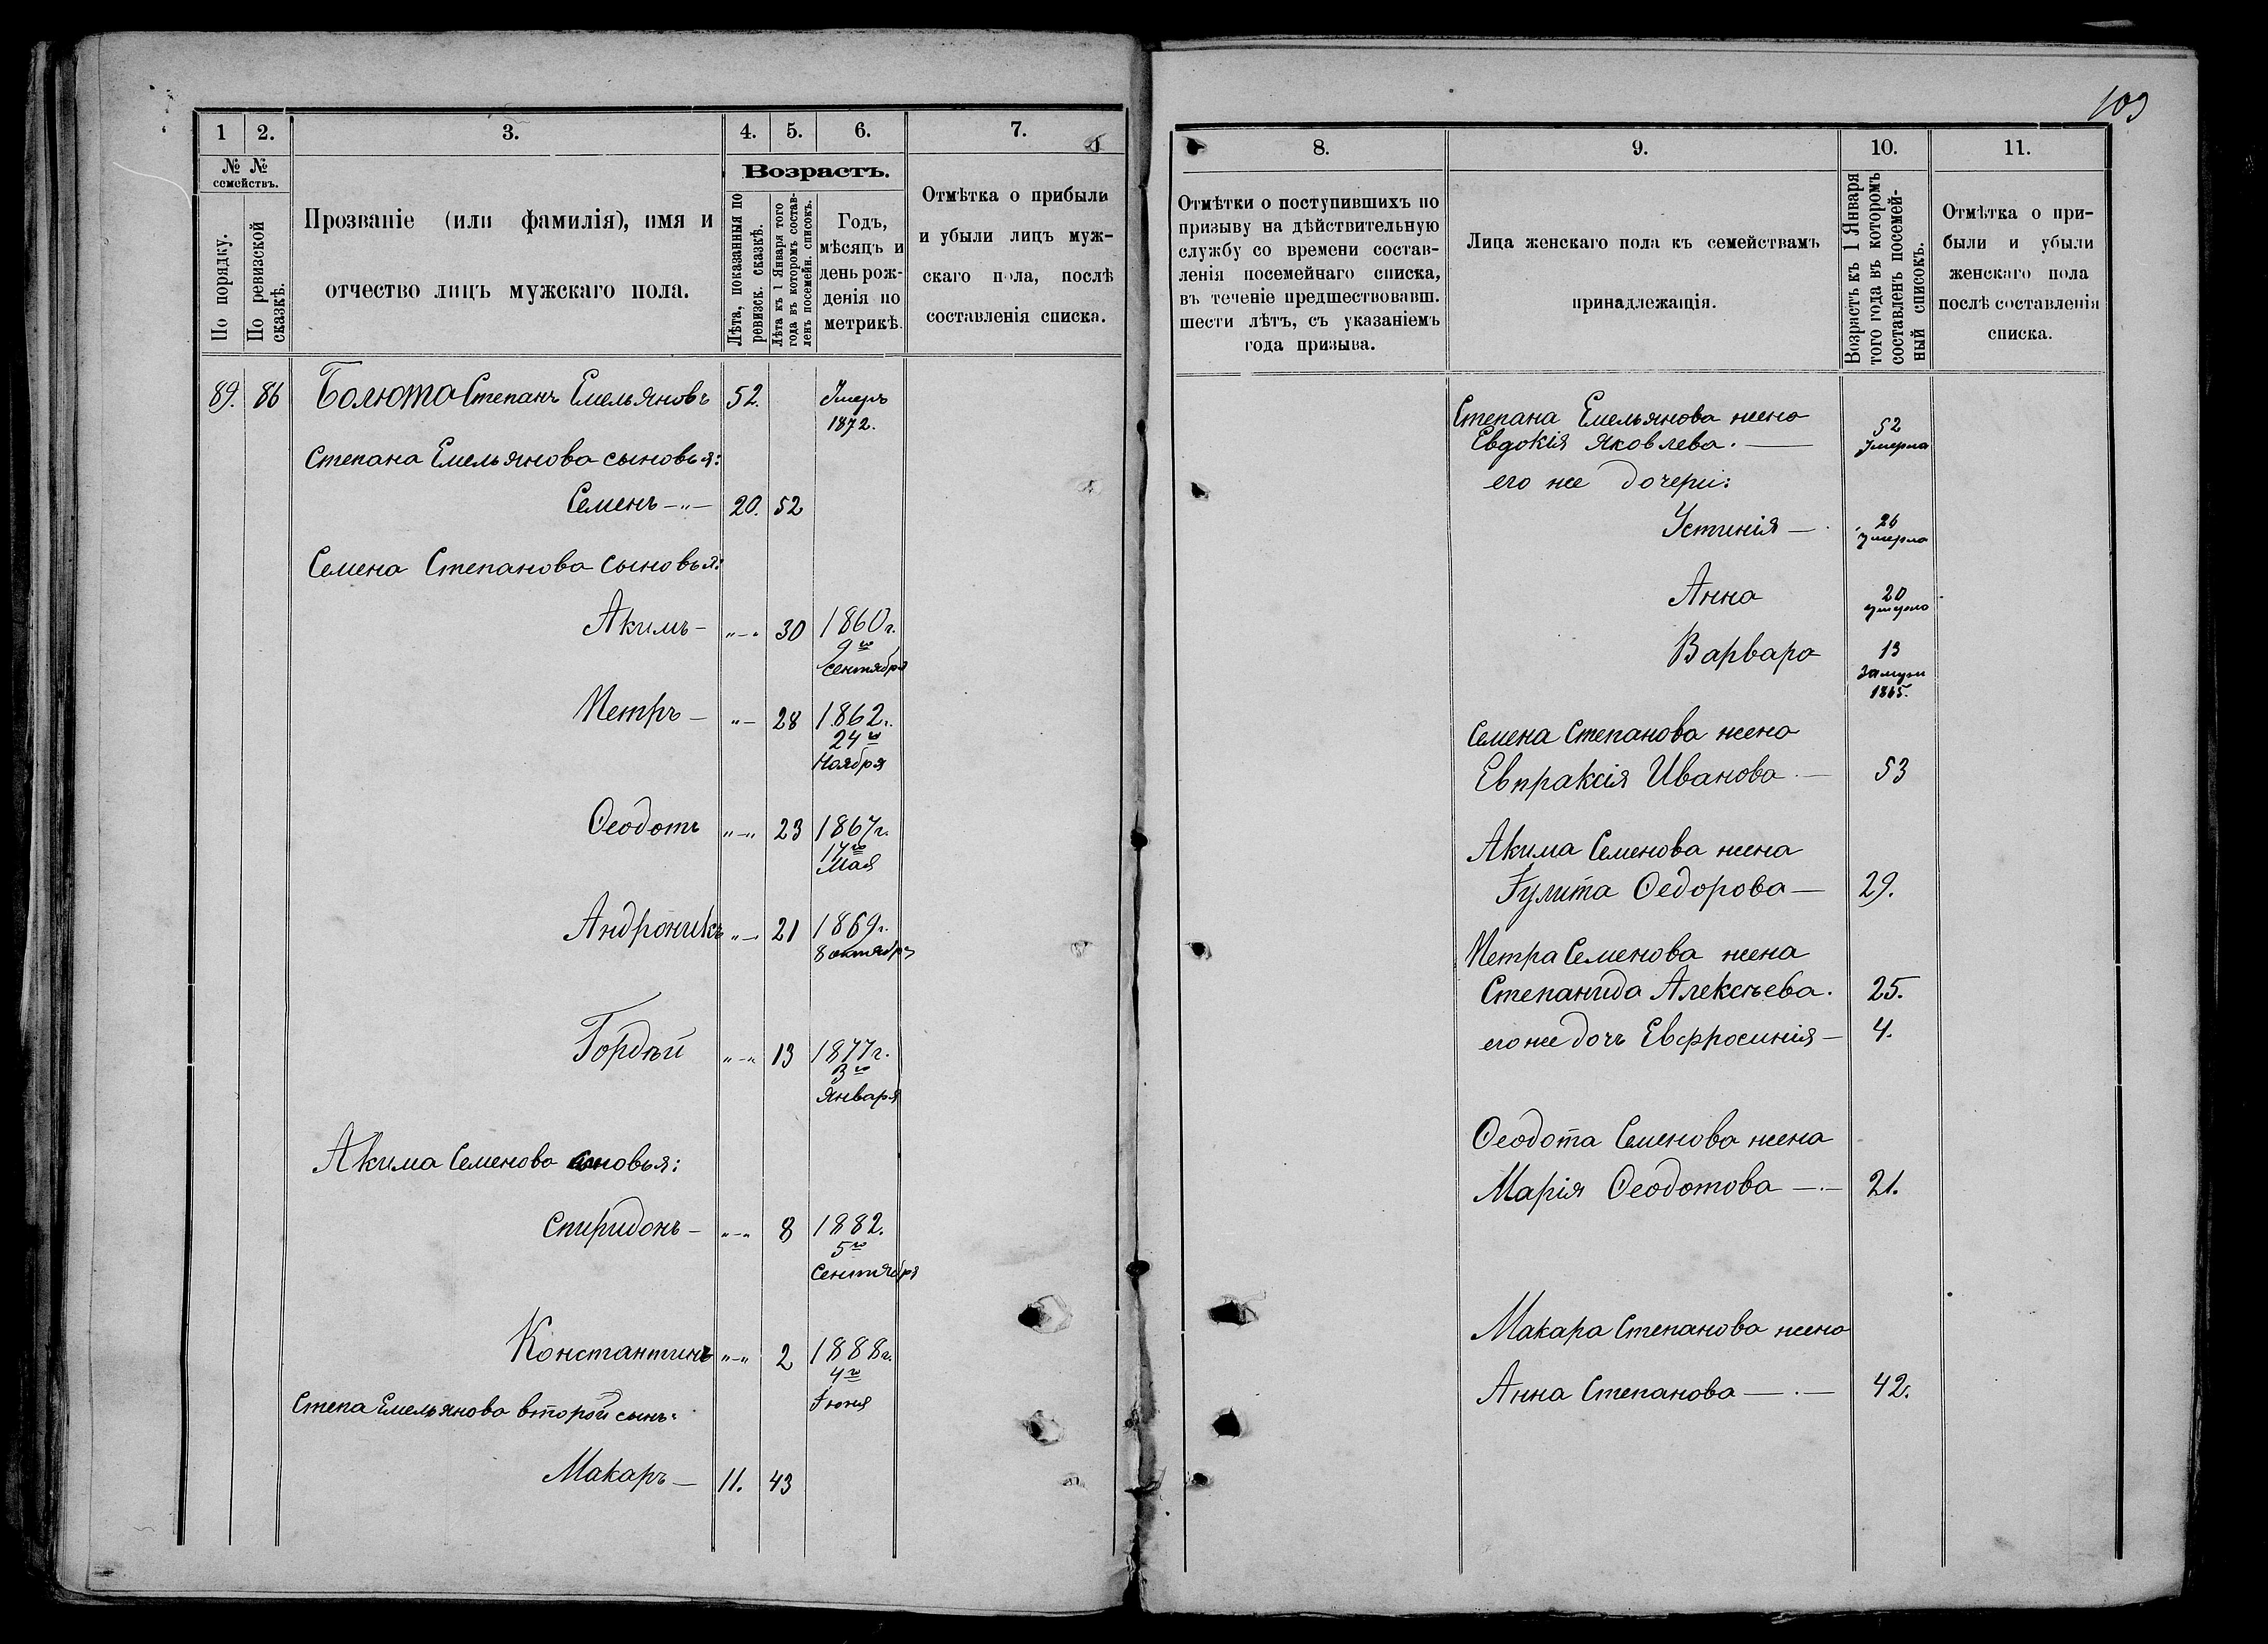 103
1 2. 3. 4. 5. 6. 7.
№ № семействъ.
По порядку.
По ревизской сказкѣ.
Прозваніе (или фамилія), имя и
отчество лицъ мужскаго пола.
Возрастъ.
Лѣта, показанныя по ревизск. сказкѣ.
Лѣта къ 1 Января того года въ которомъ составленъ посемейн. списокъ.
Годъ,
мѣсяцъ и
день рож-
денія по
метрикѣ.
Отмѣтка о прибыли
и убыли лицъ муж-
скаго пола, послѣ
составленія списка.
89. 86 Болюта Степанъ Емельяновъ 52. Умеръ
1872.
Степана Емельянова сыновья:
Семенъ -„- 20. 52
Семена Степанова сыновья:
Акимъ - „-„ 30 1860 г.
9го
сентября
Петръ - „- 28 1862 г.
24го
Ноября
Ѳеодотъ „-„ 23 1867 г.
17го
Мая
Андроникъ „- 21 1869 г.
8 октября
Гордѣй „-„ 13 1877 г.
3го
Января
Акима Семенова сыновья:
Спиридонъ - „-„ 8 1882.
5го
Сентября
Константинъ „-„ 2 1888 г.
4го
Іюня
Степа Емельянова второй сынъ:
Макаръ - 11. 43
8. 9. 10. 11.
Отмѣтки о поступившихъ по
призыву на дѣйствительную
службу со времени состав-
ленія посемейнаго списка,
въ теченіе предшествовавш.
шести лѣтъ, съ указаніемъ
года призыва.
Лица женскаго пола къ семействамъ
принадлежащія.
Возрастъ къ 1 Января
того года въ которомъ
составленъ посемей-
ный списокъ.
Отмѣтка о при-
были и убыли
женскаго пола
послѣ составленія
списка.
Степана Емельянова жена
Евдокія Яковлева. — 52
Умерла
его же дочери:
Устинія — 26
умерла
Анна 20
умерла
Варвара 13
замуж
1865.
Семена Степанова жена
Евпраксія Иванова — 53
Акима Семенова жена
Іулита Ѳедорова — 29.
Петра Семенова жена
Степанида Алексѣева. 25.
его же дочь Евфросинія — 4.
Ѳеодота Семенова жена
Марія Ѳеодотова — 21.
Макара Степанова жена
Анна Степанова — 42.